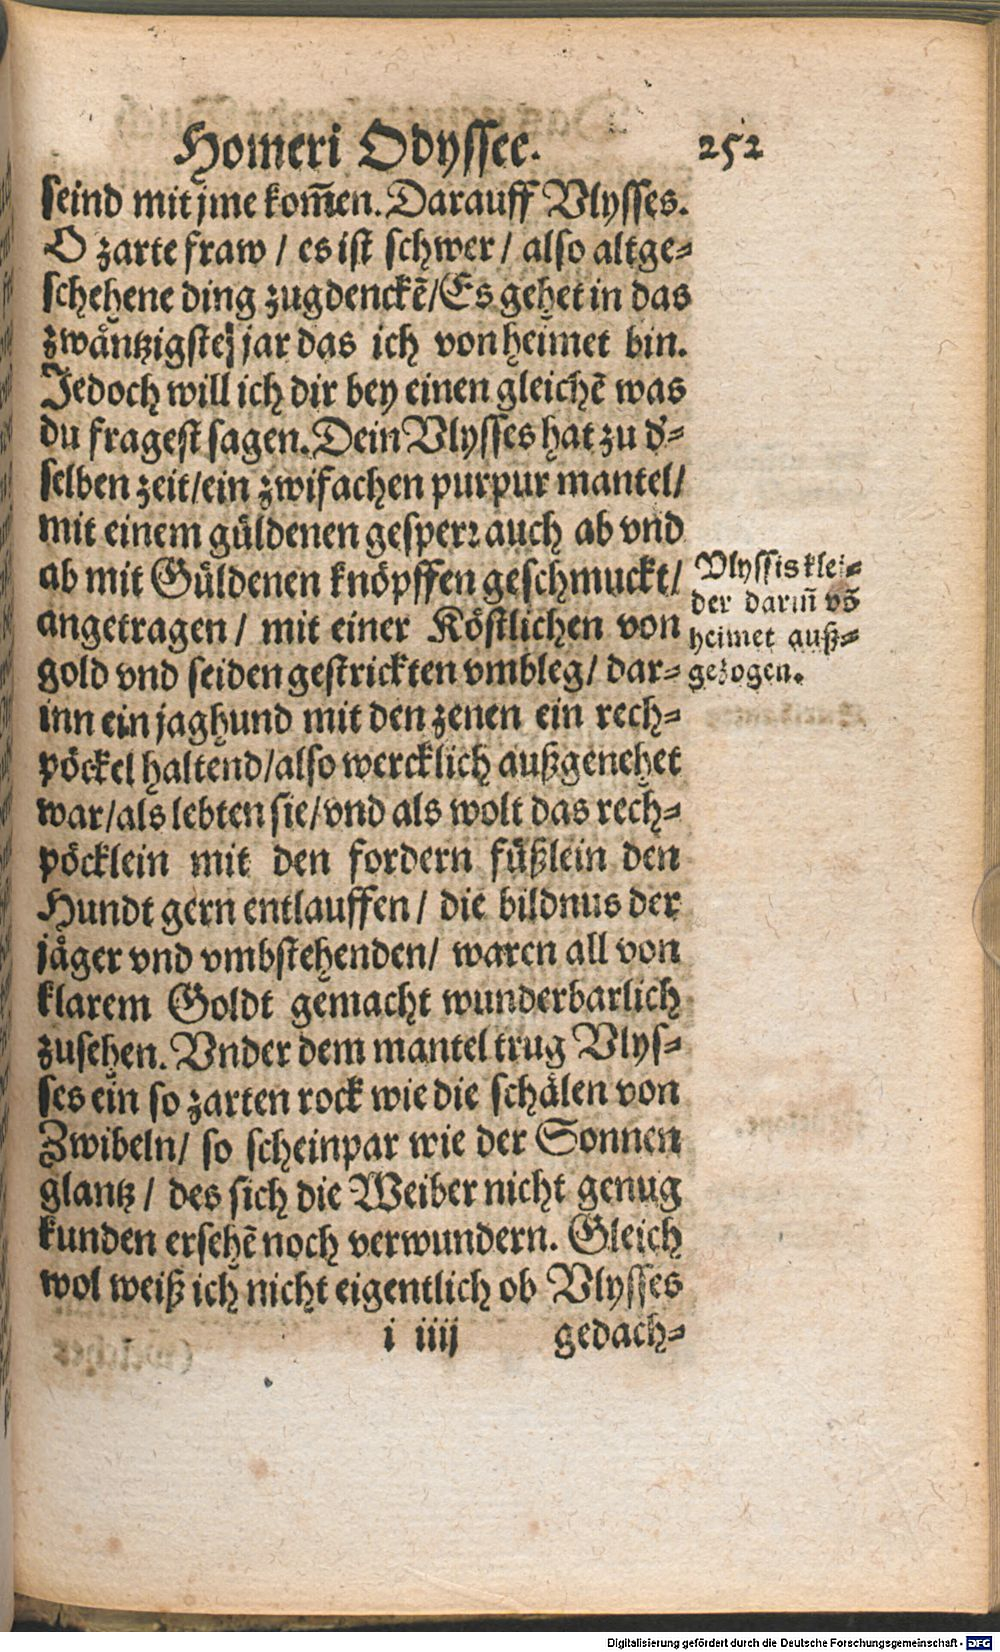 Homeri Odyssee. 252
seind mit jme kom̃en. Darauff Vlysses.
O zarte fraw / es ist schwer / also altge⸗
schehene ding zugdenckẽ/Es gehet in das
zwäntzigste jar das ich von heimet bin.
Jedoch will ich dir bey einen gleichẽ was
du fragest sagen. Dein Vlysses hat zu d'⸗
selben zeit/ein zwifachen purpur mantel/
mit einem güldenen gesperr auch ab vnd
ab mit Güldenen knöpffen geschmuckt/
angetragen / mit einer Köstlichen von
gold vnd seiden gestrickten vmbleg/ dar⸗
inn ein jaghund mit den zenen ein rech⸗
pöckel haltend/also wercklich außgenehet
war/als lebten sie/vnd als wolt das rech⸗
pöcklein mit den fordern füßlein den
Hundt gern entlauffen / die bildnus der
jäger vnd vmbstehenden/ waren all von
klarem Goldt gemacht wunderbarlich
zusehen. Vnder dem mantel trug Vlys⸗
ses ein so zarten rock wie die schälen von
Zwibeln/ so scheinpar wie der Sonnen
glantz / des sich die Weiber nicht genug
kunden ersehẽ noch verwundern. Gleich
wol weiß ich nicht eigentlich ob Vlysses
i iiij gedach⸗
Vlyssis klei⸗
der darin̄ võ
heimet auß⸗
gezogen.
Digitalisierung gefördert durch die Deutsche Forschungsgemeinschaft - DFG